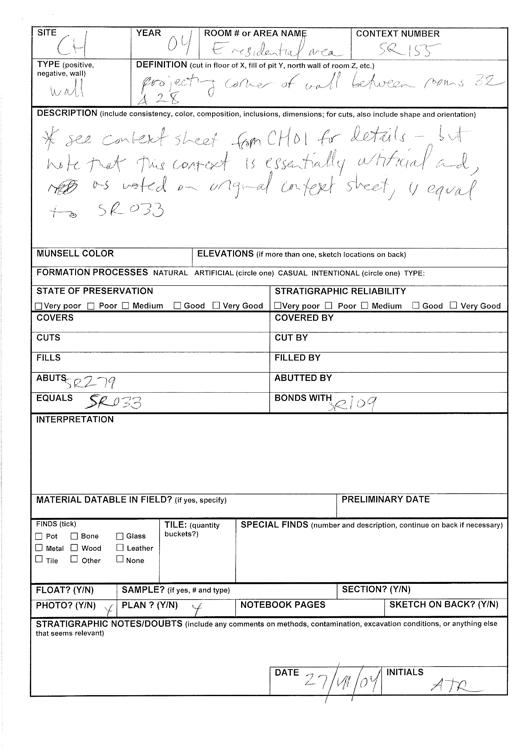 SITE CH YEAR 04 ROOM # or AREA NAME E residential area CONTEXT NUMBER SR155
TYPE (positive, negative, wall) wall
DEFINITION (cut in floor of X, fill of pit Y, north wall of room Z, etc.)
projecting corner of wall between rooms 22
& 28
DESCRIPTION (include consistency, color, composition, inclusions, dimensions; for cuts, also include shape and orientation)
* see context sheet from CH01 for details - but
note that this context is essentially artificial and,
as noted on original context sheet, is equal
to SR033
MUNSELL COLOR ELEVATIONS (if more than one, sketch locations on back)
FORMATION PROCESSES NATURAL ARTIFICIAL (circle one) CASUAL INTENTIONAL (circle one) TYPE:
STATE OF PRESERVATION STRATIGRAPHIC RELIABILITY
☐Very poor ☐ Poor ☐ Medium ☐ Good ☐ Very Good ☐Very poor ☐ Poor ☐ Medium ☐ Good ☐ Very Good
COVERS COVERED BY
CUTS CUT BY
FILLS FILLED BY
ABUTS SR279 ABUTTED BY
EQUALS SR033 BONDS WITH SR109
INTERPRETATION
MATERIAL DATABLE IN FIELD? (if yes, specify) PRELIMINARY DATE
FINDS (tick) TILE: (quantity SPECIAL FINDS (number and description, continue on back if necessary)
buckets?)
☐ Pot ☐ Bone ☐ Glass
☐ Metal ☐ Wood ☐ Leather
☐ Tile ☐ Other ☐ None
FLOAT? (Y/N) SAMPLE? (if yes, # and type) SECTION? (Y/N)
PHOTO? (Y/N) Y PLAN ? (Y/N) Y NOTEBOOK PAGES SKETCH ON BACK? (Y/N)
STRATIGRAPHIC NOTES/DOUBTS (include any comments on methods, contamination, excavation conditions, or anything else
that seems relevant)
DATE 27/VII/04 INITIALS ATR